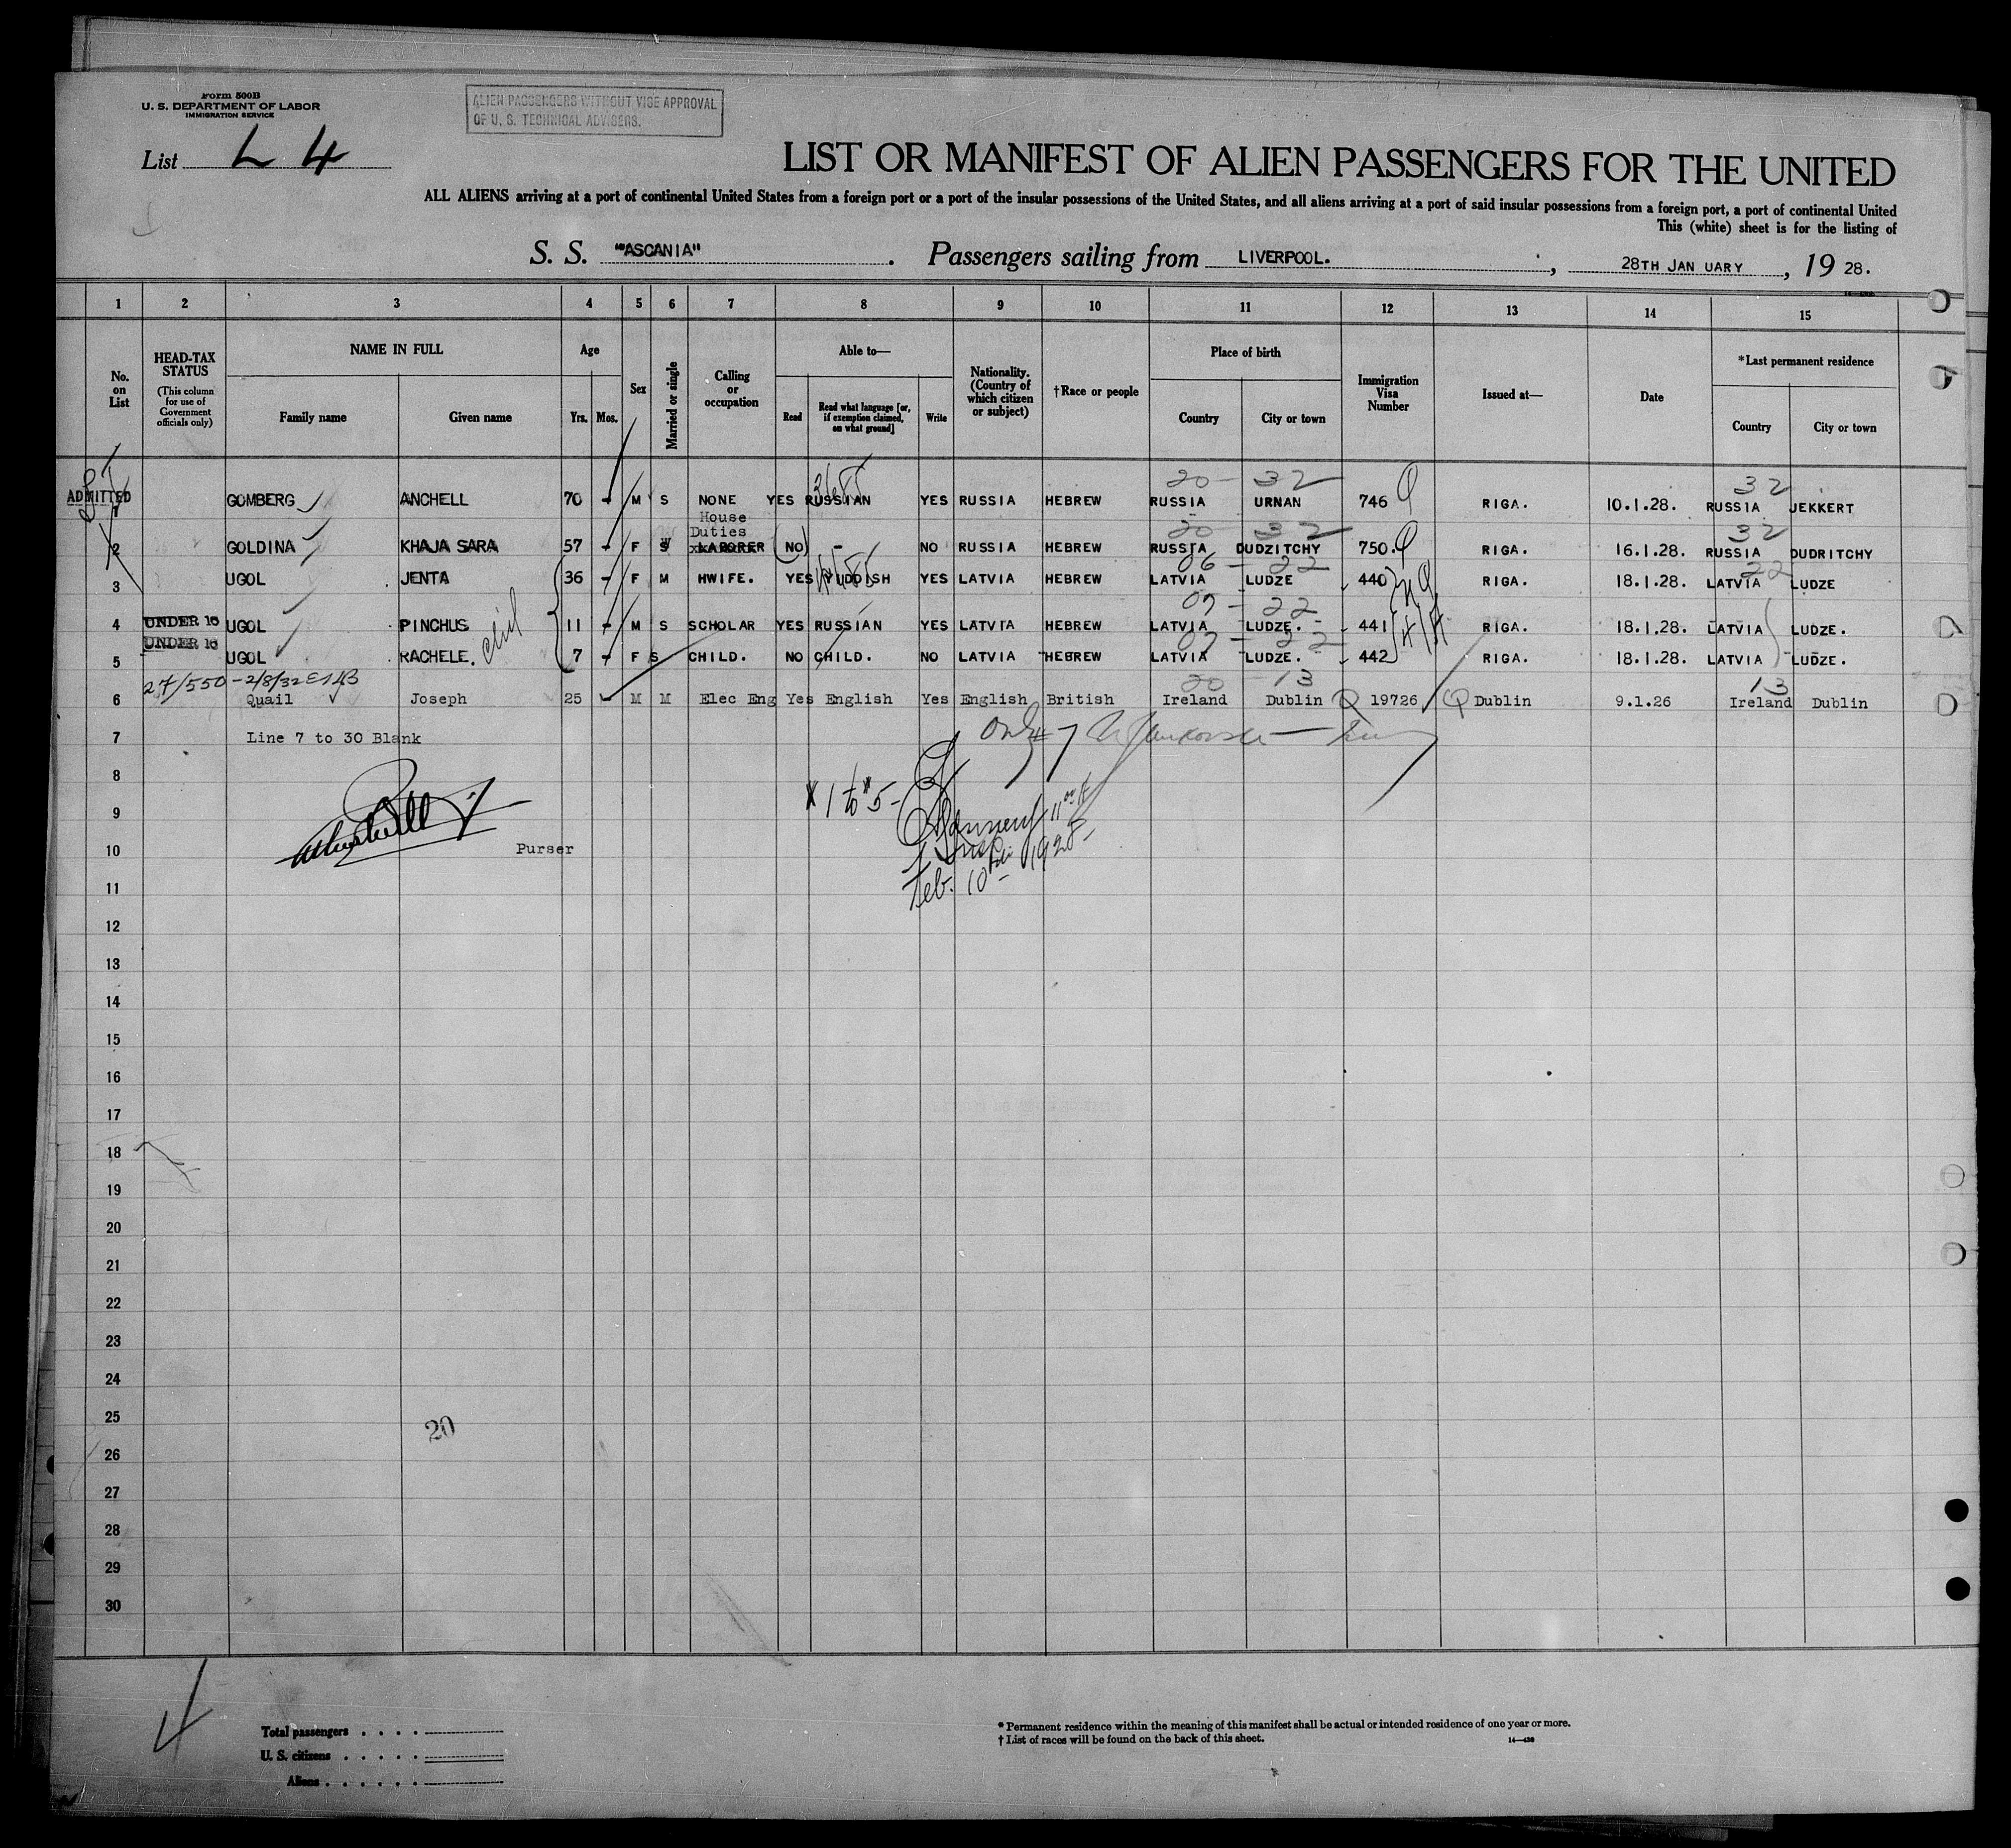 Form 500B
U. S. DEPARTMENT OF LABOR
IMMIGRATION SERVICE
ALIEN PASSENGERS WITHOUT VISE APPROVAL
OF U. S. TECHNICAL ADVISERS.
List L 4
LIST OR MANIFEST OF ALIEN PASSENGERS FOR THE UNITED
ALL ALIENS arriving at a port of continental United States from a foreign port or a port of the insular possessions of the United States, and all aliens arriving at a port of said insular possessions from a foreign port, a port of continental United
This (white) sheet is for the listing of
S. S. "ASCANIA" . Passengers sailing from LIVERPOOL. , 28TH JAN UARY , 19 28.
1 2 3 4 5 6 7 8 9 10 11 12 13 14 15
No. on List
HEAD-TAX STATUS (This column for use of Government officials only)
NAME IN FULL Family name Given name
Age Yrs. Mos.
Sex
Married or single
Calling or occupation
Able to— Read Read what language [or, if exemption claimed, on what ground] Write
Nationality. (Country of which citizen or subject)
†Race or people
Place of birth Country City or town
Immigration Visa Number
Issued at—
Date
*Last permanent residence Country City or town
20 32 32
ADMITTED GOMBERG ANCHELL 70 - M S NONE YES RUSSIAN YES RUSSIA HEBREW RUSSIA URNAN 746 Q RIGA. 10.1.28. RUSSIA JEKKERT
House
Duties 20 32 32
2 GOLDINA KHAJA SARA 57 - F S LABORER NO - NO RUSSIA HEBREW RUSSIA DUDZITCHY 750. Q RIGA. 16.1.28. RUSSIA DUDRITCHY
06 - 22 22
3 UGOL JENTA 36 - F M HWIFE. YES YIDDISH YES LATVIA HEBREW LATVIA LUDZE 440 RIGA. 18.1.28. LATVIA LUDZE
07 - 22
4 UNDER 16 UGOL PINCHUS 11 - M S SCHOLAR YES RUSSIAN YES LATVIA HEBREW LATVIA LUDZE. 441 RIGA. 18.1.28. LATVIA LUDZE.
07 - 22
5 UNDER 16 UGOL RACHELE. 7 - F S CHILD. NO CHILD. NO LATVIA HEBREW LATVIA LUDZE. 442 RIGA. 18.1.28. LATVIA LUDZE.
27/550 - 2/8/32 20 13 13
6 Quail Joseph 25 M M Elec Eng Yes English Yes English British Ireland Dublin Q 19726 Q Dublin 9.1.26 Ireland Dublin
7 Line 7 to 30 Blank
8
9
10 Purser
1 to 5 -
Feb. 10th 1928 -
11
12
13
14
15
16
17
18
19
20
21
22
23
24
25
20
26
27
28
29
30
4
Total passengers . . . .
U. S. citizens . . . . .
Aliens . . . . . .
* Permanent residence within the meaning of this manifest shall be actual or intended residence of one year or more.
† List of races will be found on the back of this sheet.